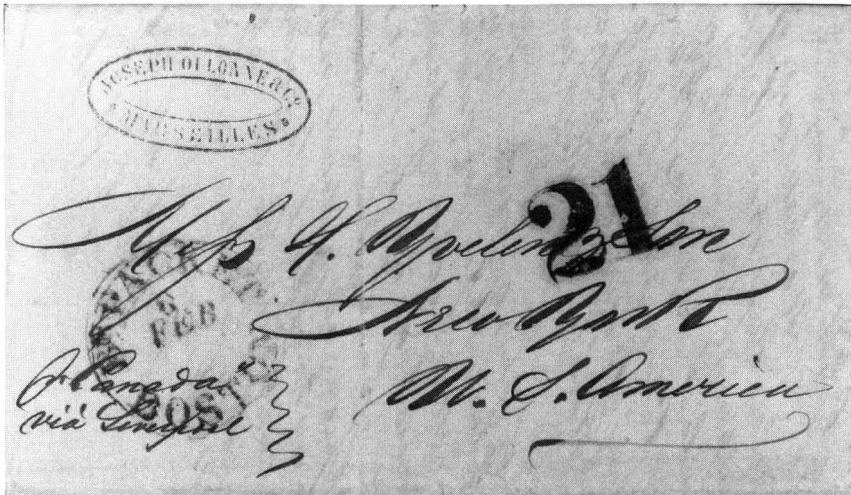 JOSEPH OLLONNE & Co
MARSEILLES
21
Mess H. & Son
New York
U. S. America
PACKET
8
FEB
BOSTON
P Canada
viâ Liverpool